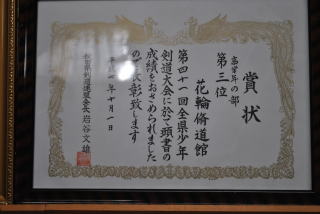 賞状
高学年の部
第三位
花輪脩道館
第四十一回全県少年
剣道大会に於て頭書の
成績をおさめられました
ので表彰致します
十月一日
秋田県剣道連盟会長 岩谷文雄